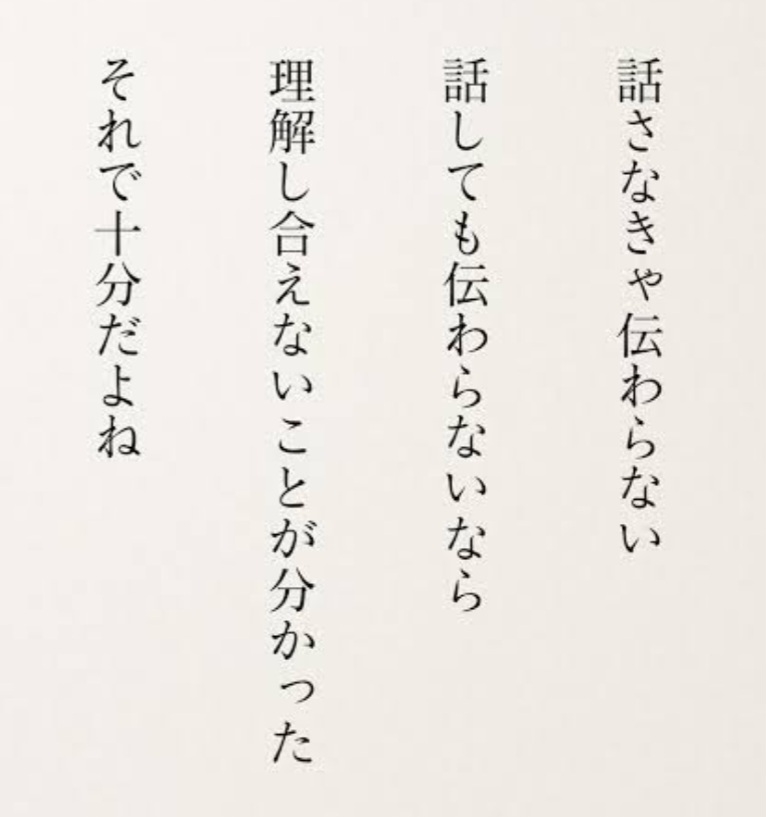 話さなきゃ伝わらない
話しても伝わらないなら
理解し合えないことが分かった
それで十分だよね